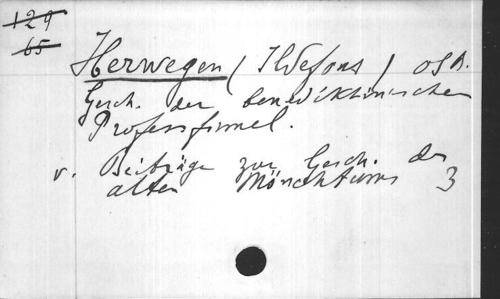 129
65
Herwegen (Ildefons) OSB.
Gesch. der benediktinischen
Professformel.
v. Beiträge zur Gesch. des
alten Mönchtums 3